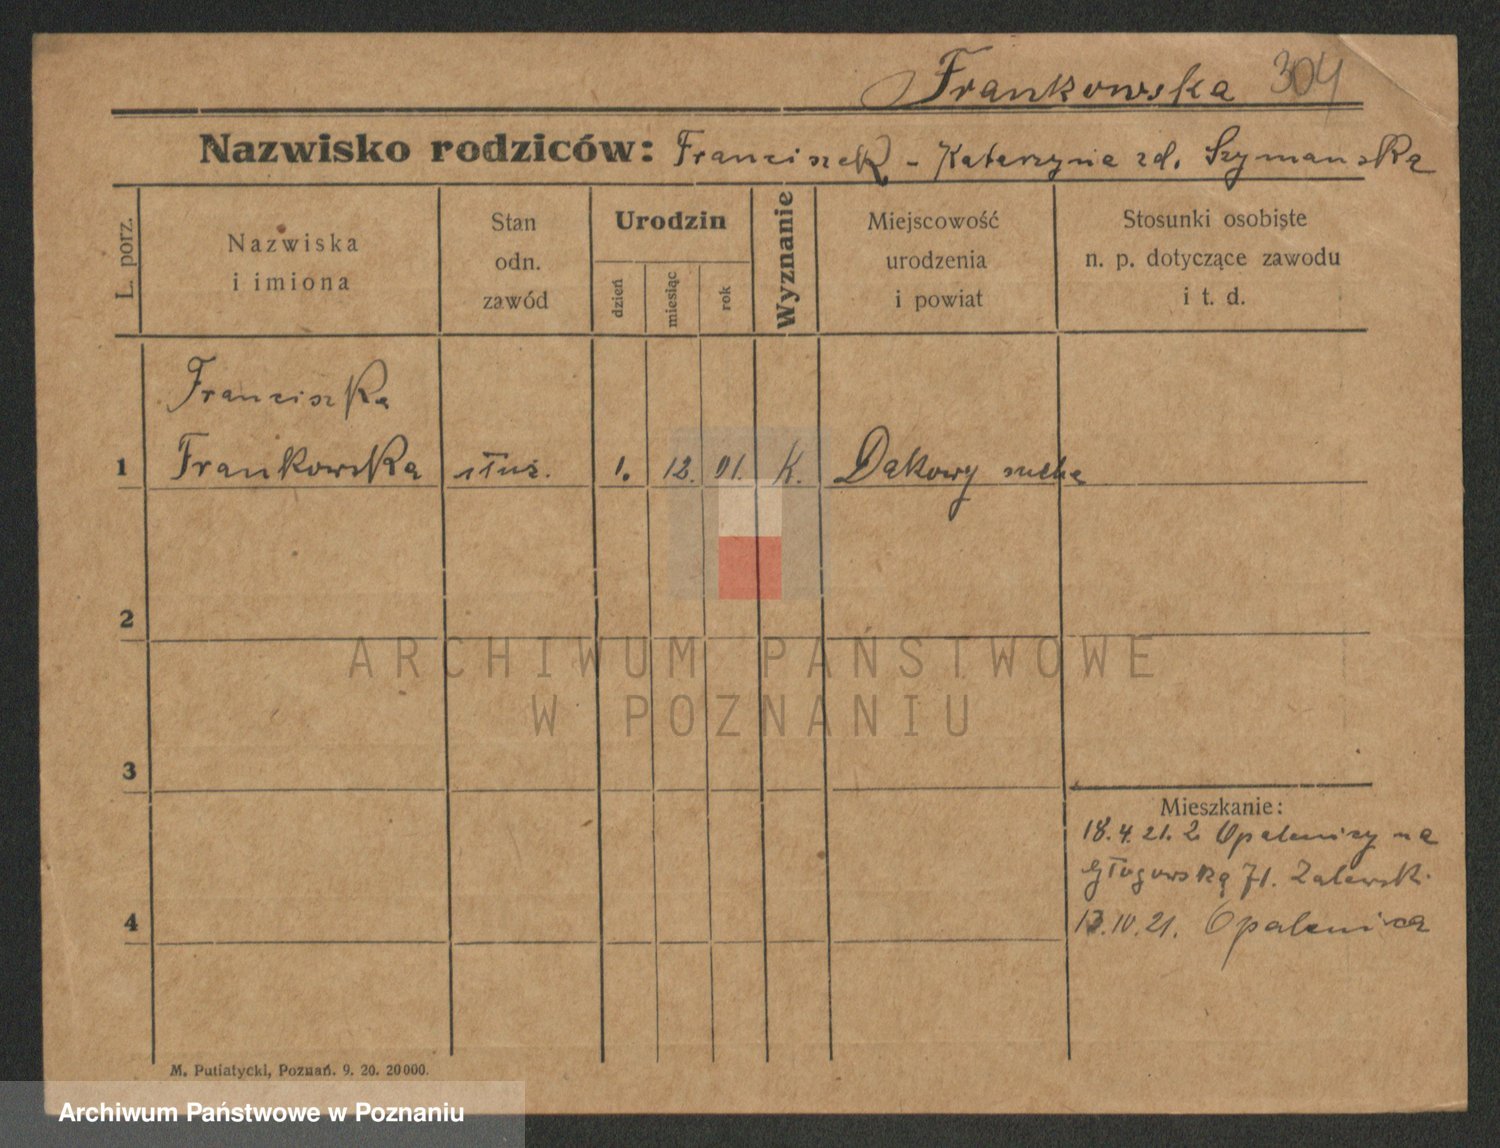 Frankowska 304
Nazwisko rodziców: Franciszek - Katarzyna zd. Szymanska
L. porz.
Nazwiska
i imiona
Stan
odn.
zawód
Urodzin
dzień
miesiąc
rok
Wyznanie
Miejscowość
urodzenia
i powiat
Stosunki osobiste
n. p. dotyczące zawodu
i t. d.
Franciszka
1 Frankowska służ. 1. 12. 01. K. Dakowy suche
2
ARCHIWUM PAŃSTWOWE
W POZNANIU
3
Mieszkanie:
18.4.21. z Opalenicy na
Głogowską 71. Zalewski
4 13.IV.21. Opalenica
M. Putiatycki, Poznań. 9. 20. 20000.
Archiwum Państwowe w Poznaniu